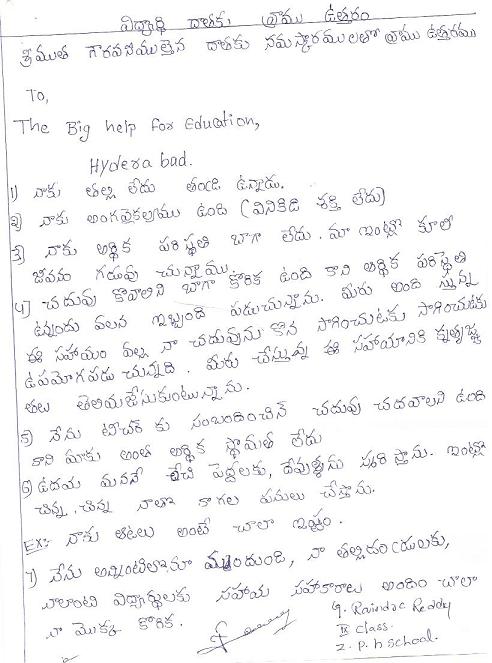 విద్యార్థి దాతకు వ్రాయు ఉత్తరం
శ్రీయుత గౌరవనీయులైన దాతకు నమస్కారములతో వ్రాయు ఉత్తరము
To,
The Big help for Education,
Hyderabad.
1) నాకు తల్లి లేదు తండ్రి ఉన్నాడు.
2) నాకు అంగవైకల్యము ఉంది (వినికిడి శక్తి లేదు)
3) నాకు ఆర్థిక పరిస్థతి బాగా లేదు. మా ఇంట్లో కూలి
జీవనం గడుపు చున్నాము.
4) చదువు కోవాలని బాగా కోరిక ఉంది కాని ఆర్థిక పరిస్థితి
ఉన్నందు వలన ఇబ్బంది పడుచున్నాను. మీరు అంది స్తున్న
ఈ సహాయం వల్ల నా చదువును కొన సాగించుటకు సాగించుటకు
ఉపమోగపడు చున్నది. మీరు చేస్తున్న ఈ సహాయానికి కృతజ్ఞ
తలు తెలియజేసుకుంటున్నాను.
5) నేను టీచర్ కు సంబందించిన చదువు చదవాలని ఉంది
కాని మాకు అంత ఆర్థిక స్తోమత లేదు
6) ఉదయ మననే లేచి పెద్దలకు, దేవుళ్ళను స్మరిస్తాను. ఇంట్లో
చిన్న చిన్న నాతో కాగల పనులు చేస్తాను.
EX:- నాకు ఆటలు అంటే చాలా ఇష్టం.
7) నేను అన్నింటిలోనూ ముందుండి, నా తల్లిదండ్రులకు,
నాలాంటి విద్యార్థులకు సహాయ సహాకారాలు అందించాలా
నా మొక్క కోరిక.
G. Ravinder Reddy
IX class.
Z. P. H School.